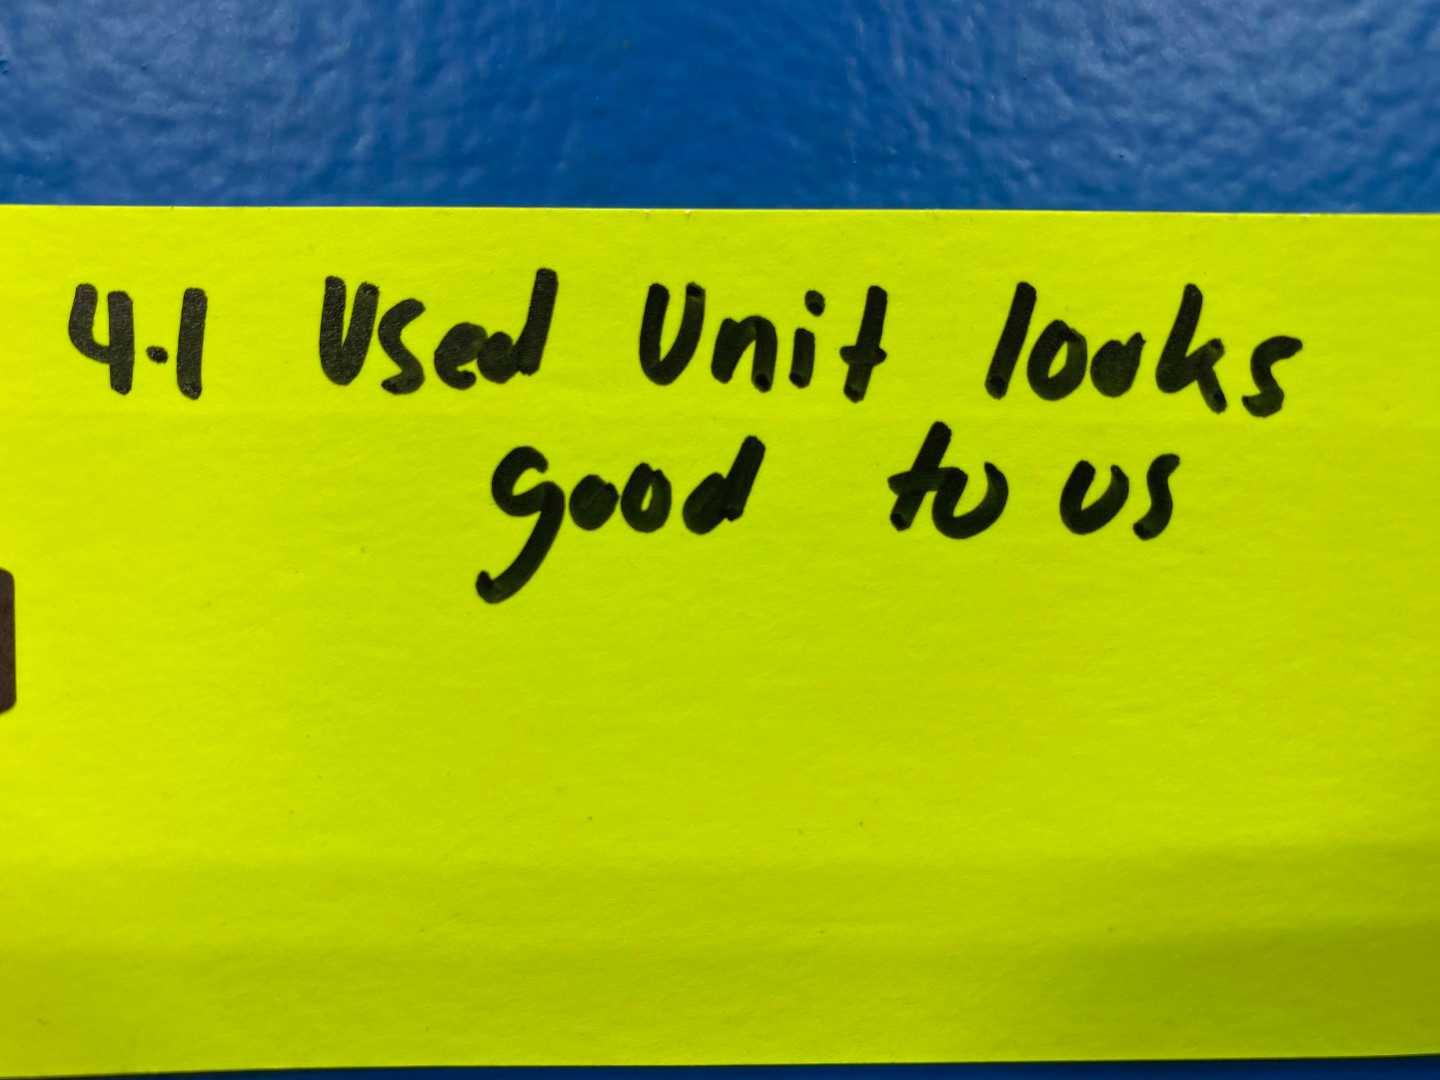 4.1 Used Unit looks
good to us